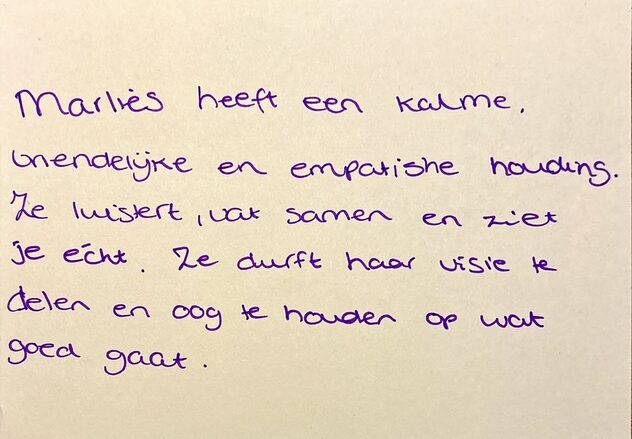 Marliès heeft een kalme,
vriendelijke en empatishe houding.
Ze luistert, vat samen en ziet
je écht. Ze durft haar visie te
delen en oog te houden op wat
goed gaat.